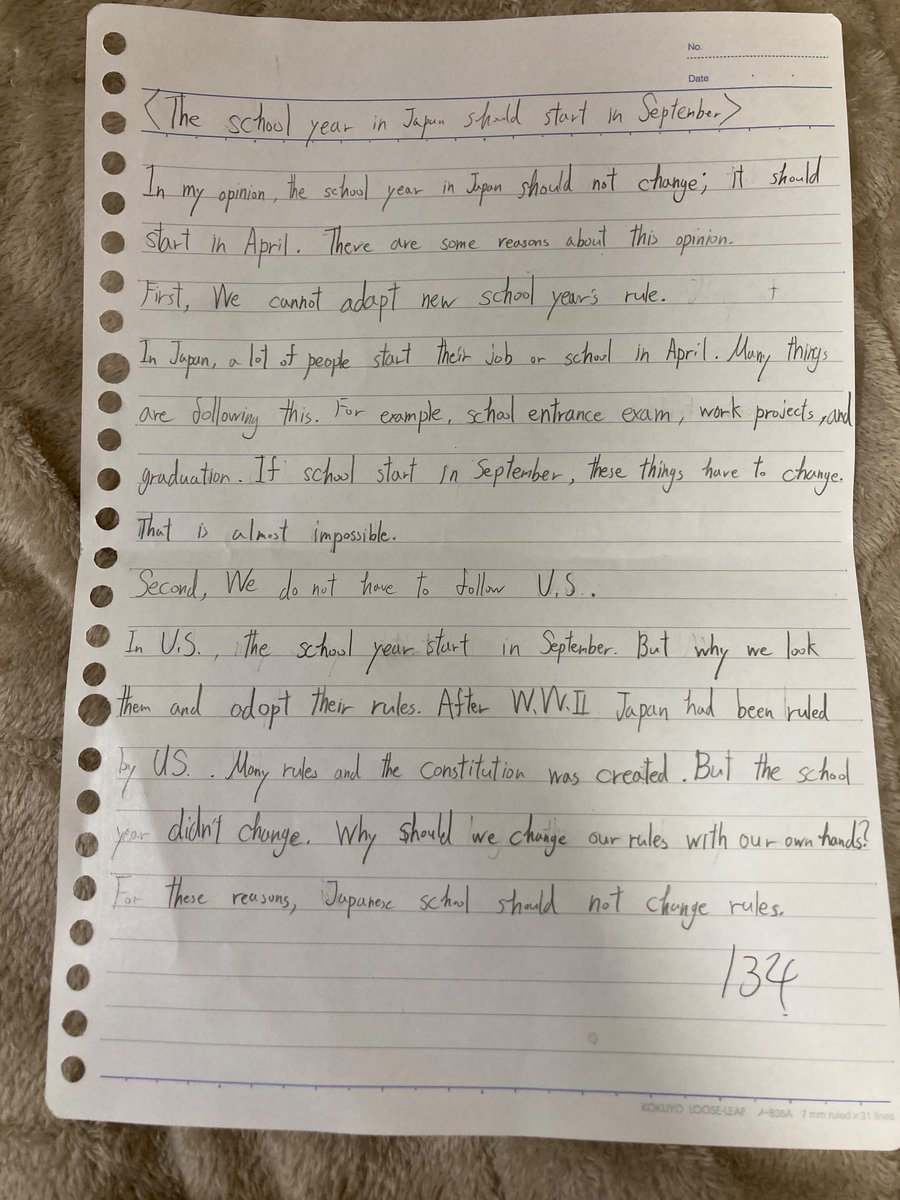 No.
Date
<The school year in Japan should start in September>
In my opinion, the school year in Japan should not change; it should
start in April. There are some reasons about this opinion.
First, We cannot adapt new school year's rule.
In Japan, a lot of people start their job or school in April. Many things
are following this. For example, school entrance exam, work projects, and
graduation. If school start in September, these things have to change.
That is almost impossible.
Second, We do not have to follow U.S..
In U.S., the school year start in September. But why we look
them and adopt their rules. After W.W.II Japan had been ruled
by US.. Many rules and the constitution was created. But the school
year didn't change. Why should we change our rules with our own hands?
For these reasons, Japanese school should not change rules.
134
KOKUYO LOOSE-LEAF ノ-836A 7 mm ruled×31 lines